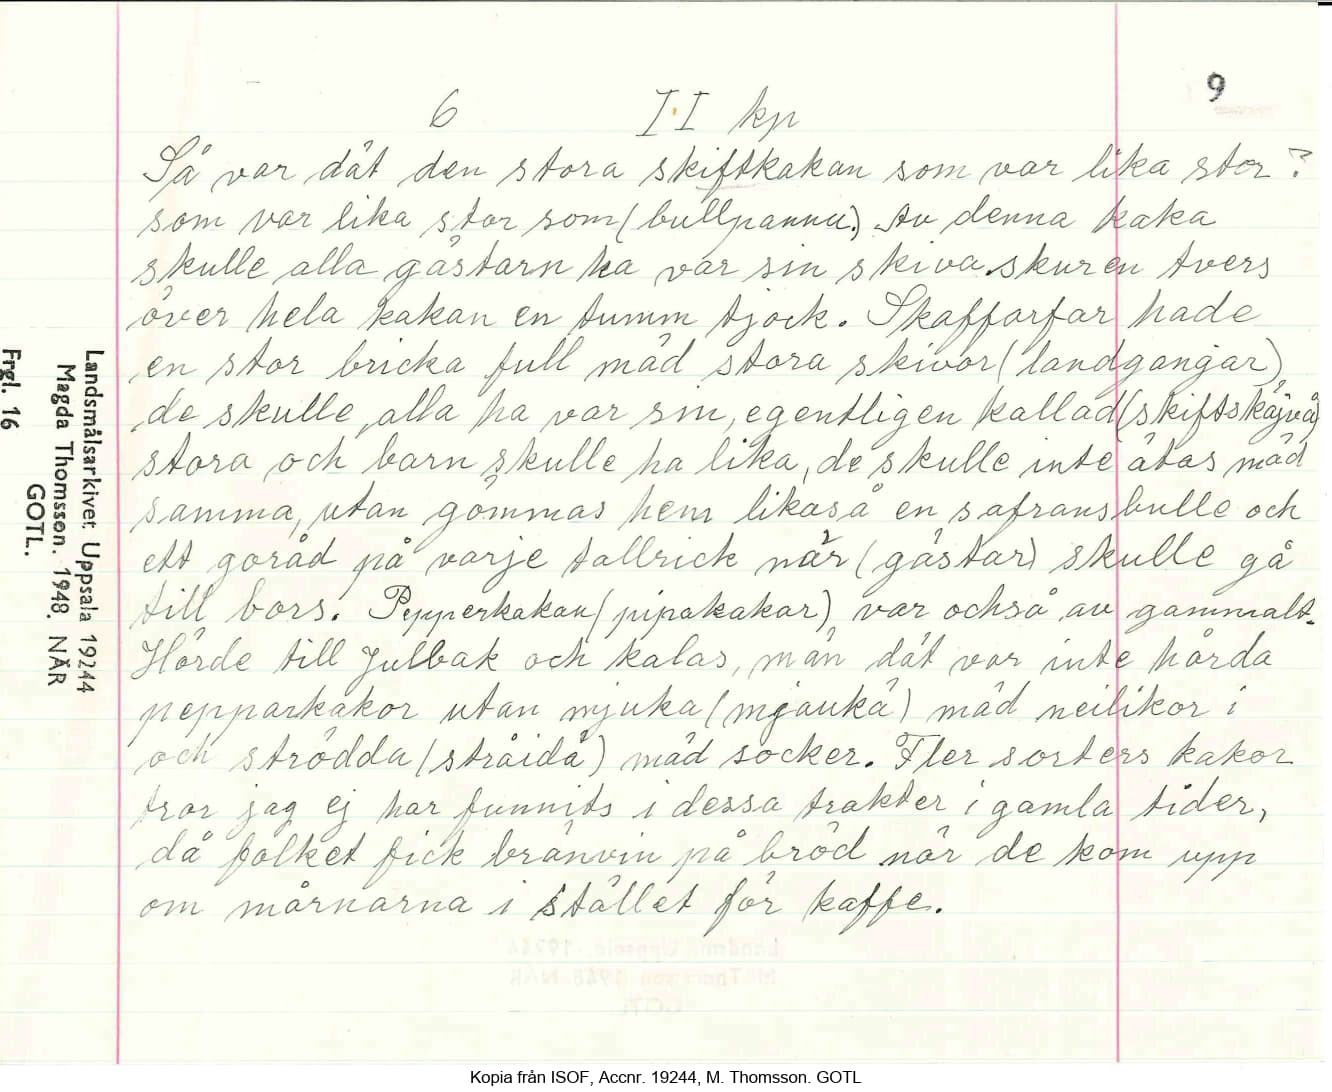 9
6 II kp
Så var dät den stora skiftkakan som var lika stor?
som var lika stor som (bullpannu.) Av denna kaka
skulle alla gästarn ha var sin skiva skuren tvers
över hela kakan en tumm tjock. Skafforfar hade
en stor bricka full mäd stora skivor (landgangar)
de skulle alla ha var sin, egentligen kallad (skiftskåjvå)
stora och barn skulle ha lika, de skulle inte ätas mäd
samma, utan gömmas hem likaså en safransbulle och
ett goråd på varje tallrick när (gästar) skulle gå
till bors. Pepperkakan (pipakakar) var också av gammalt.
Hörde till Julbak och kalas, män dät var inte hårda
pepparkakor utan mjuka (mjaukä) mäd neilikor i
och strödda (stråidå) mäd socker. Fler sorters kakor
tror jag ej har funnits i dessa trakter i gamla tider,
då fålket fick bränvin på bröd når de kom upp
om mårnarna i stället för kaffe.
Landsmålsarkivet, Uppsala 19244
Magda Thomsson. 1948. NÄR
GOTL.
Frgl. 16
Kopia från ISOF, Accnr. 19244, M. Thomsson. GOTL